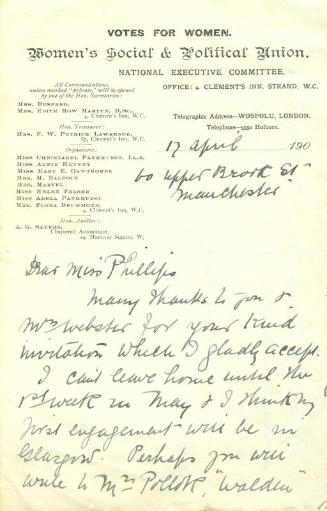 VOTES FOR WOMEN.
Women's Social & Political Union.
NATIONAL EXECUTIVE COMMITTEE.
All Communications,
unless marked "private," will be opened
by one of the Hon. Secretaries:
OFFICE: 4, CLEMENT'S INN, STRAND, W.C.
MRS. DESPARD,
MRS. EDITH HOW MARTYN, B.Sc.,
4, Clement's Inn, W.C.
Telegraphic Address—WOSPOLU, LONDON.
Telephone—5550 Holborn.
Hon. Treasurer:
MRS. F. W. PETHICK LAWRENCE,
4, Clement's Inn, W.C.
Organisers:
MISS CHRISTABEL PANKHURST, LL.B.
MISS ANNIE KENNEY
MISS MARY E. GAWTHORPE
MRS. M. BALDOCK
MRS. MARTEL
MISS HELEN FRASER
MISS ADELA PANKHURST
MRS. FLORA DRUMMOND,
4, Clement's Inn, W.C.
Hon. Auditor:
A. G. SAYERS,
Chartered Accountant,
19, Hanover Square, W.
17 April 190
60 Upper Brook St
Manchester
Dear Miss Phillips
Many thanks to you &
Mrs Webster for your kind
invitation which I gladly accept.
I can't leave home until the
1st week in May & I think my
first engagement will be in
Glasgow. Perhaps you will
write to Mrs Pollok, "Walden"